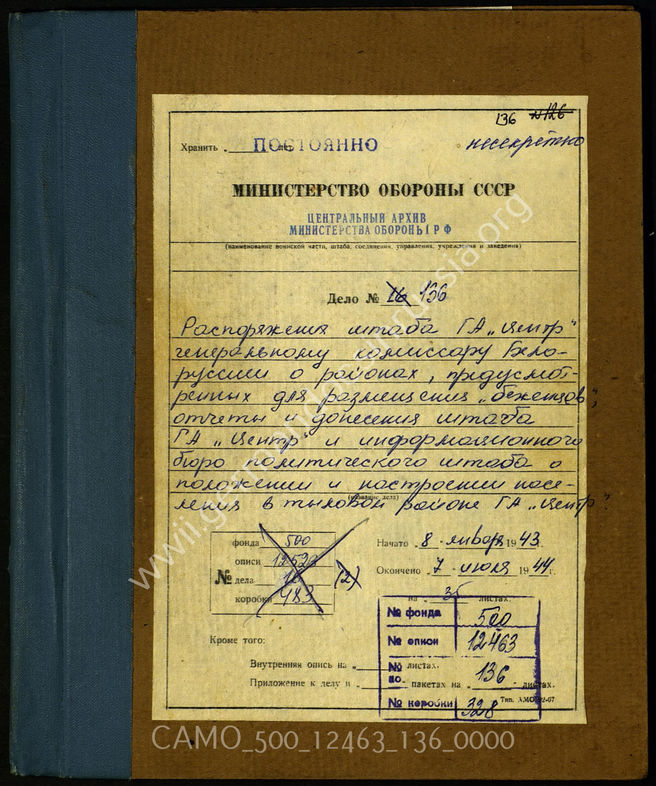 136 №126
Хранить ПОСТОЯННО
несекретно
МИНИСТЕРСТВО ОБОРОНЫ СССР
ЦЕНТРАЛЬНЫЙ АРХИВ
МИНИСТЕРСТВА ОБОРОНЫ РФ
(наименование воинской части, штаба, соединения, управления, учреждения и заведения)
Дело № 16 136
Распоряжения штаба ГА „Центр"
генеральному комиссару Бело-
руссии о районах, предусмот-
ренных для размещения „беженцов",
отчеты и донесения штаба
ГА „Центр" и информационного
бюро политического штаба о
положении и настроении насе-
(название дела)
ления в тыловом районе ГА „Центр".
фонда 500
описи
№ дела (2)
коробки 483
Начато 8 января 1943 г.
Окончено 7 июля 1944 г.
на 35 листах.
Кроме того:
Внутренняя опись на листах.
Приложение к делу в пакетах на листах.
№ фонда 500
№ описи 12463
№ 136
№ коробки 328
Тип.
www.germandocsinrussia.org
CAMO_500_12463_136_0000